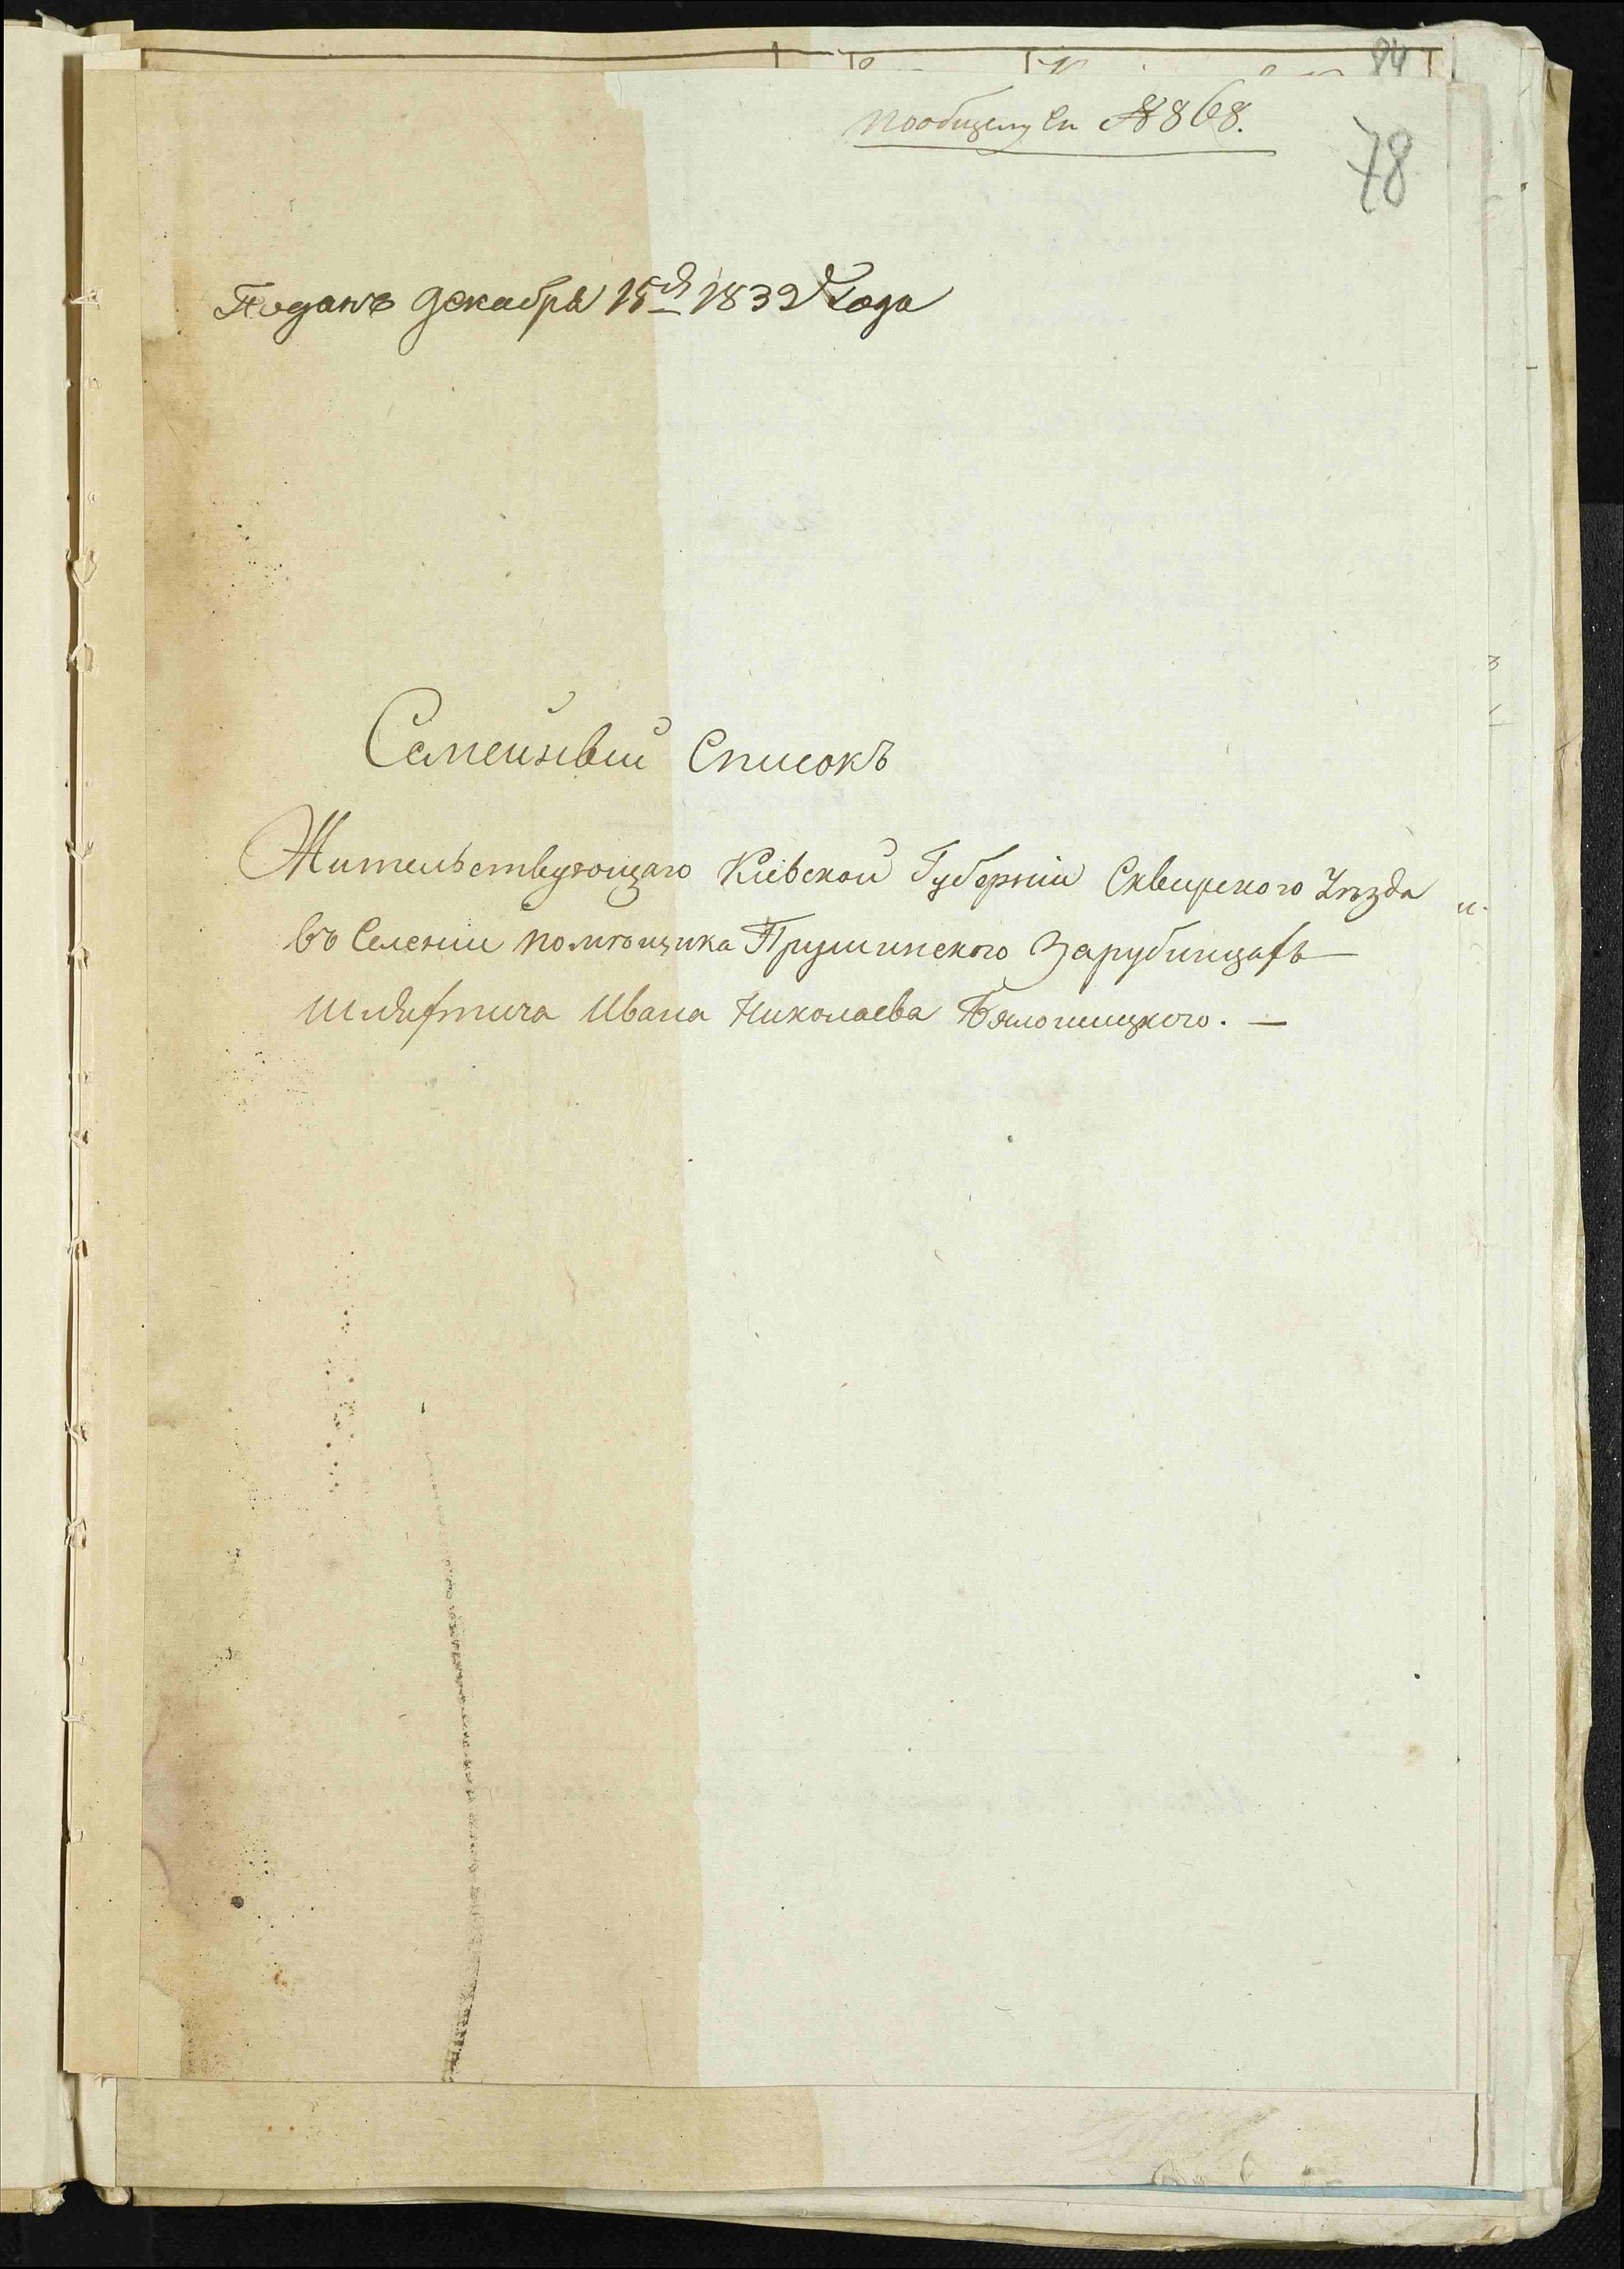 84
пообщему Сп № 868.
78
Поданъ декабря 15го 1832 Года
Семейный Списокъ
Жительствующаго Кіевской Губерніи Сквирского Уѣзда
въ Селеніи помѣщика Прушинского Зарубинцахъ
шляхтича Ивана Николаева Бялошицкого. —